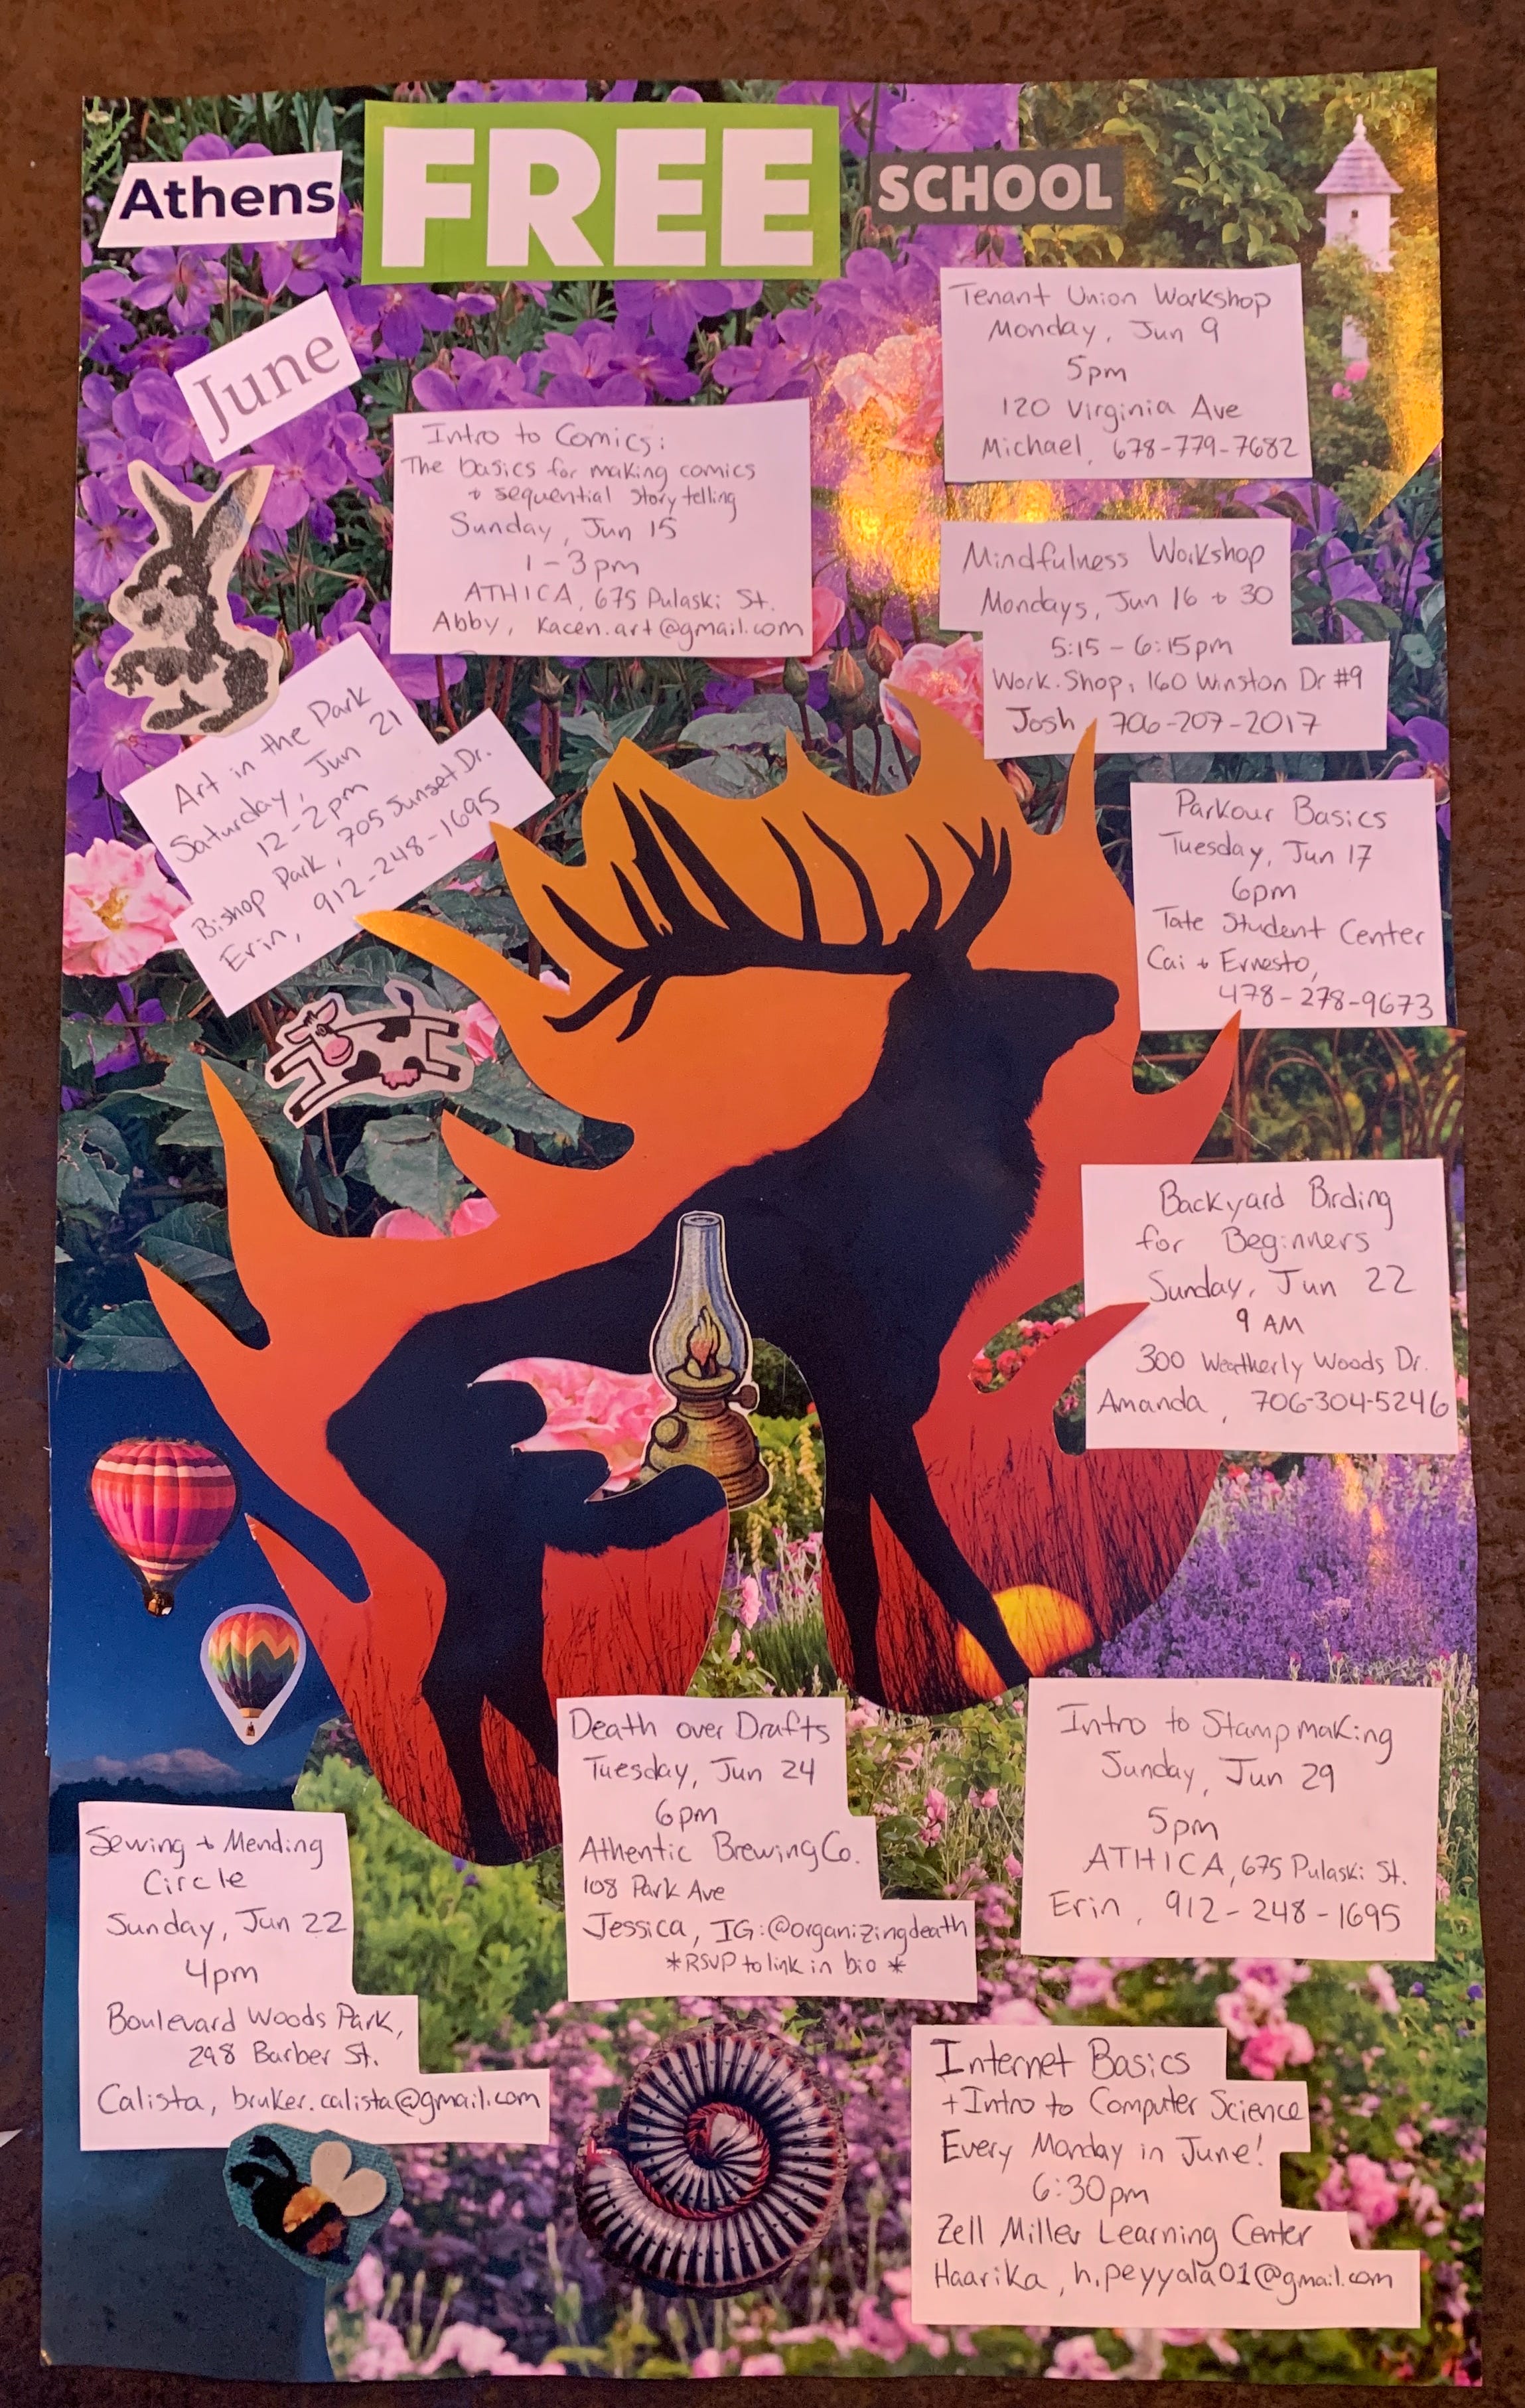 Athens FREE SCHOOL
June
Tenant Union Workshop
Monday, Jun 9
5pm
120 Virginia Ave
Michael, 678-779-7682
Intro to Comics:
The basics for making comics
+ sequential story telling
Sunday, Jun 15
1-3pm
ATHICA, 675 Pulaski St.
Abby, kacen.art@gmail.com
Mindfulness Workshop
Mondays, Jun 16 + 30
5:15 - 6:15pm
Work.Shop, 160 Winston Dr #9
Josh, 706-207-2017
Art in the Park
Saturday, Jun 21
12-2pm
Bishop Park, 705 Sunset Dr.
Erin, 912-248-1695
Parkour Basics
Tuesday, Jun 17
6pm
Tate Student Center
Cai + Ernesto,
478-278-9673
Backyard Birding
for Beginners
Sunday, Jun 22
9 AM
300 Weatherly Woods Dr.
Amanda, 706-304-5246
Sewing + Mending
Circle
Sunday, Jun 22
4pm
Boulevard Woods Park,
298 Barber St.
Calista, bruker.calista@gmail.com
Death over Drafts
Tuesday, Jun 24
6pm
Athentic Brewing Co.
108 Park Ave
Jessica, IG:@organizingdeath
*RSVP to link in bio *
Intro to Stampmaking
Sunday, Jun 29
5pm
ATHICA, 675 Pulaski St.
Erin, 912-248-1695
Internet Basics
+ Intro to Computer Science
Every Monday in June!
6:30pm
Zell Miller Learning Center
Haarika, h.peyyala01@gmail.com